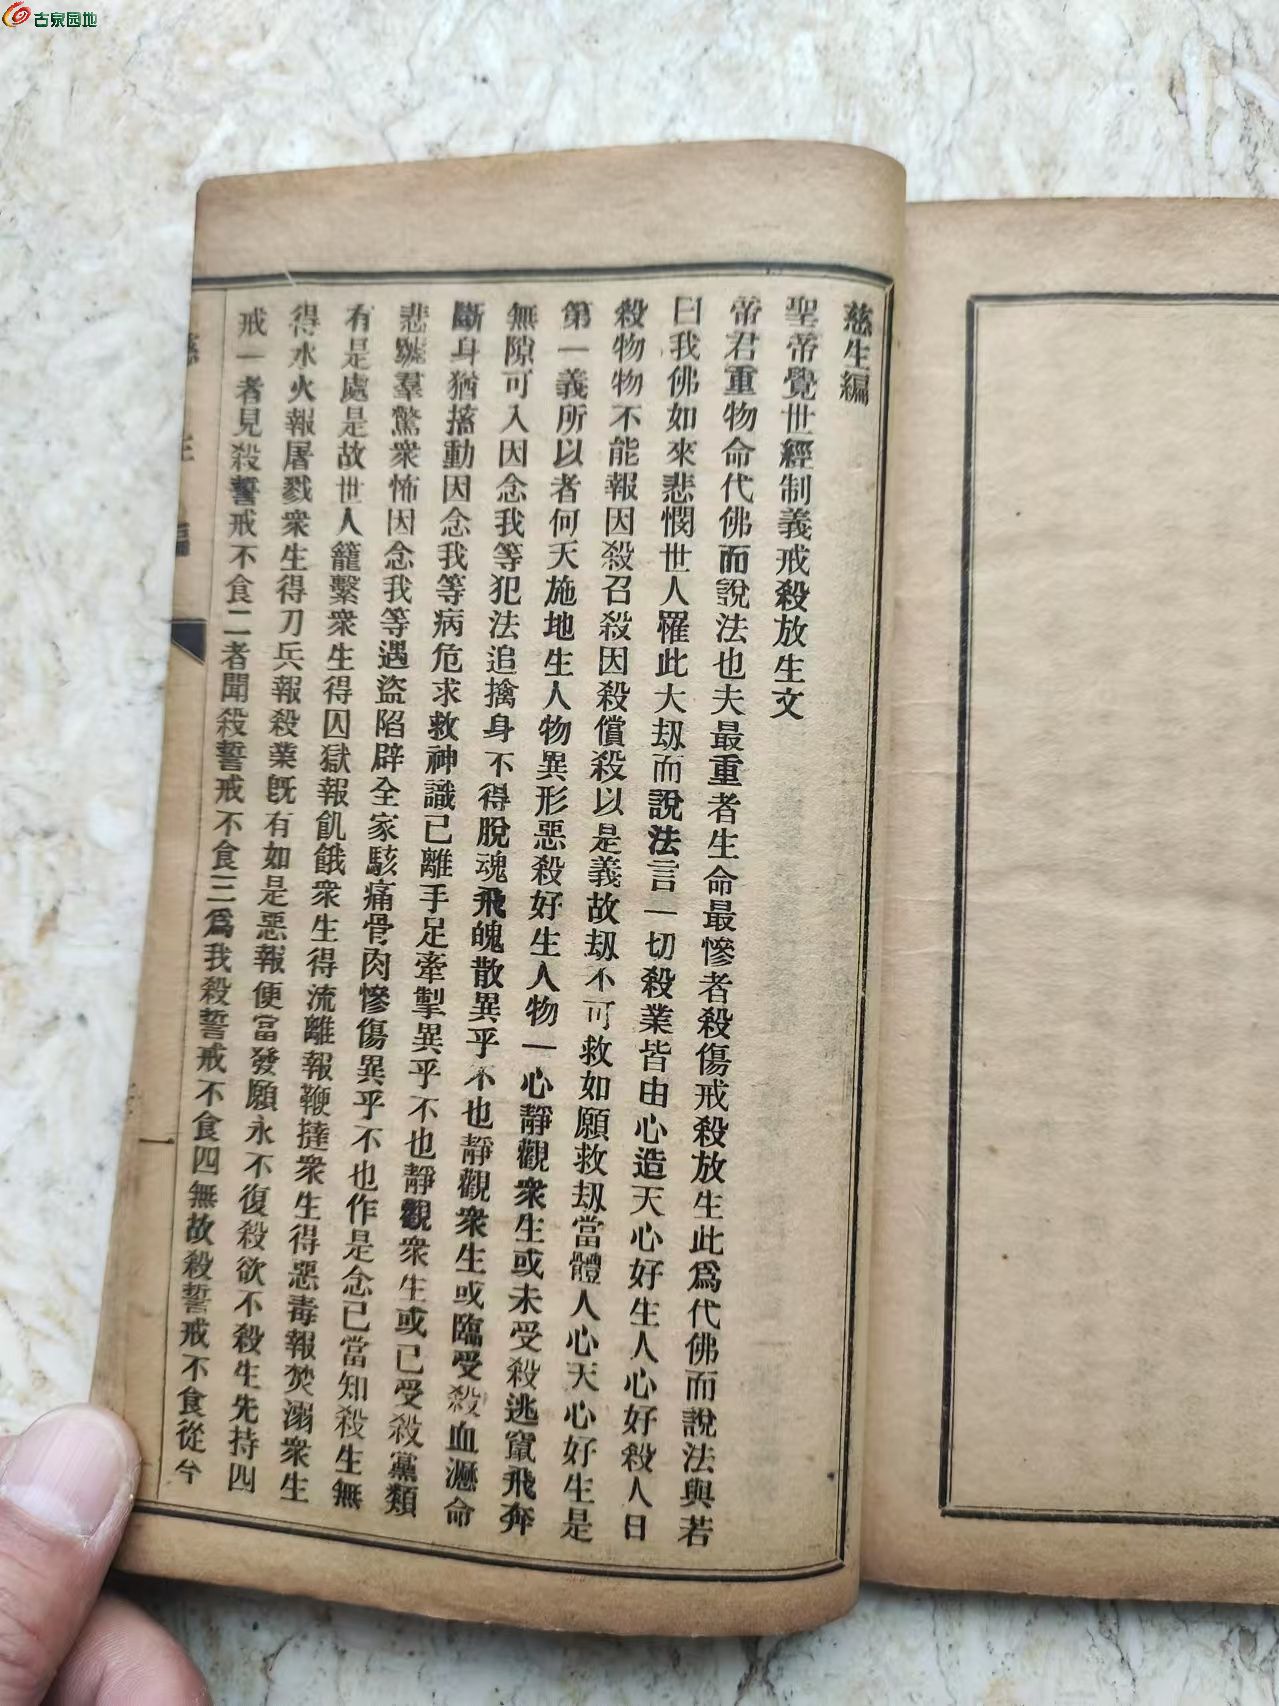 古泉园地
慈生編
聖帝覺世經制義戒殺放生文
帝君重物命代佛而說法也夫最重者生命最慘者殺傷戒殺放生此爲代佛而說法與若
曰我佛如來悲憫世人罹此大刼而說法言一切殺業皆由心造天心好生人心好殺人日
殺物物不能報因殺召殺因殺償殺以是義故刼不可救如願救刼當體人心天心好生是
第一義所以者何天施地生人物異形惡殺好生人物一心靜觀衆生或未受殺逃竄飛奔
無隙可入因念我等犯法追擒身不得脫魂飛魄散異乎不也靜觀衆生或臨受殺血瀝命
斷身猶搐動因念我等病危求救神識已離手足牽掣異乎不也靜觀衆生或已受殺黨類
悲號羣驚衆怖因念我等遇盜陷辟全家駭痛骨肉慘傷異乎不也作是念已當知殺生無
有是處是故世人籠繫衆生得囚獄報飢餓衆生得流離報鞭撻衆生得惡毒報焚溺衆生
得水火報屠戮衆生得刀兵報殺業旣有如是惡報便當發願永不復殺欲不殺生先持四
戒一者見殺誓戒不食二者聞殺誓戒不食三爲我殺誓戒不食四無故殺誓戒不食從今
慈生
一